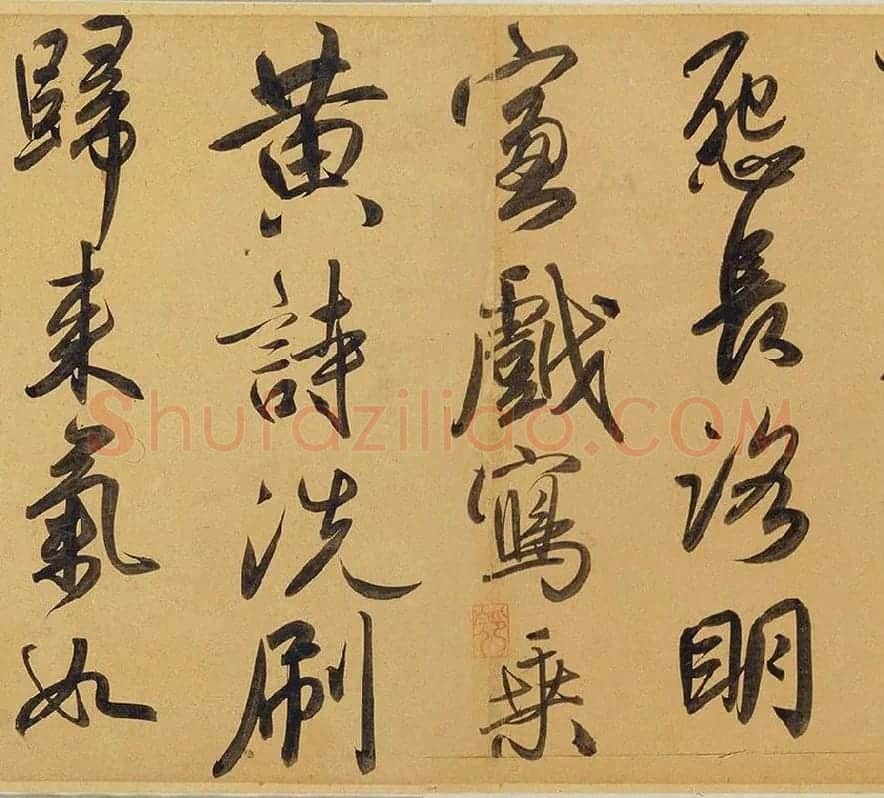 怨長洛明
窗戲寫乘
黄詩洗刷
歸来氣如
Shufaziliao.COM